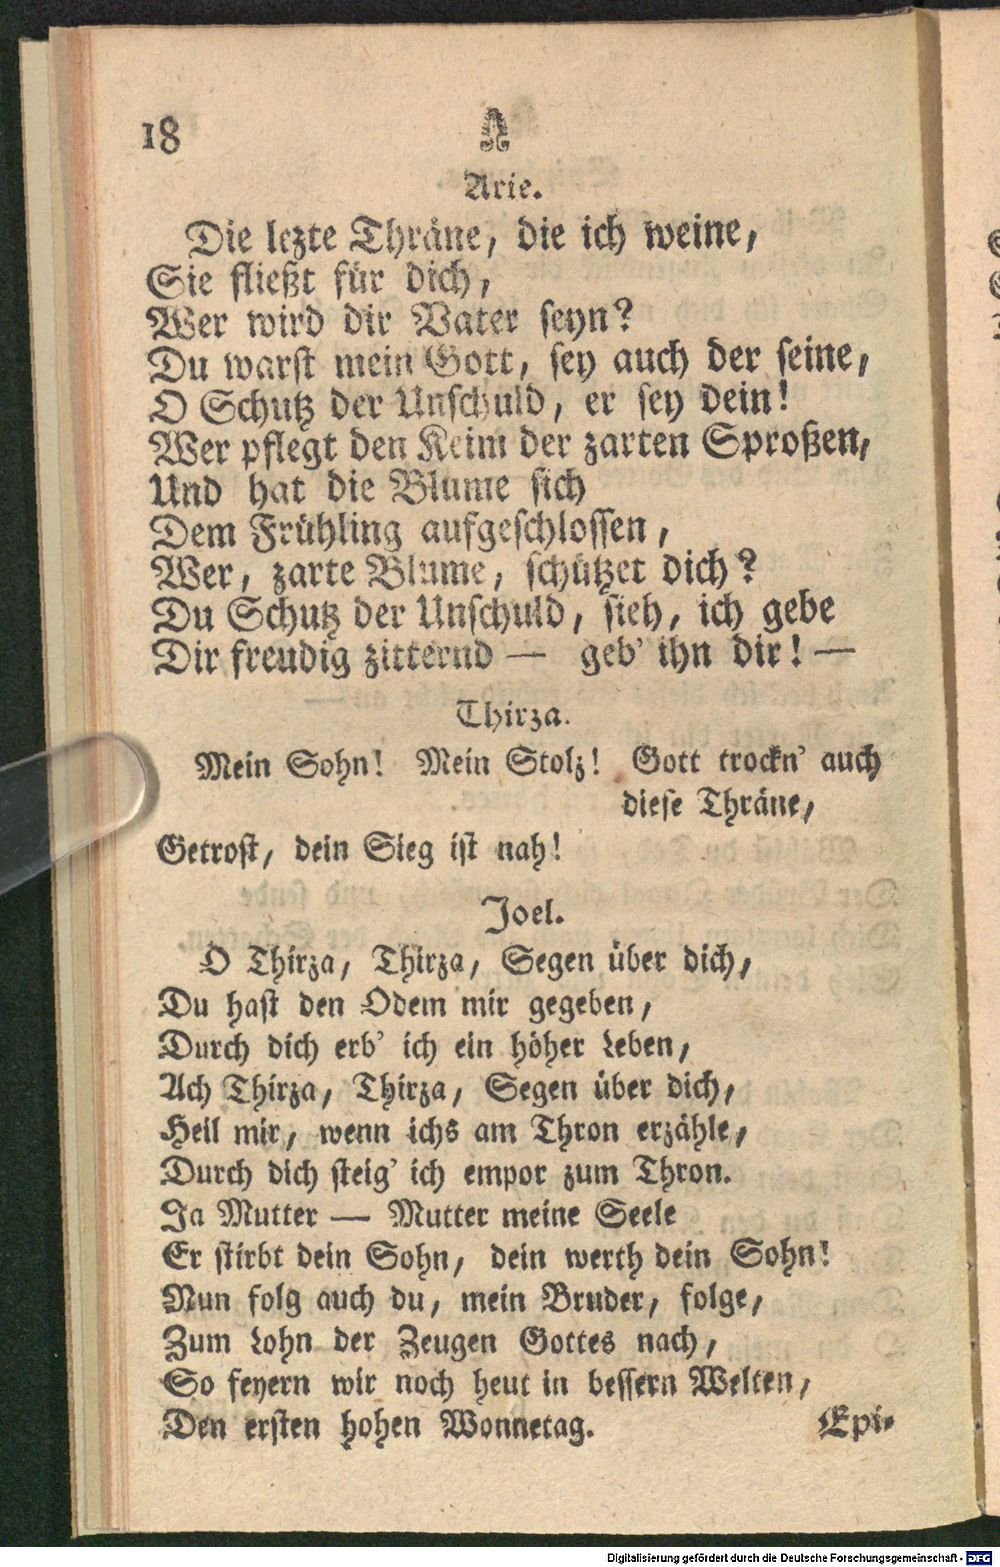 18
Arie.
Die lezte Thräne, die ich weine,
Sie fließt für dich,
Wer wird dir Vater seyn?
Du warst mein Gott, sey auch der seine,
O Schutz der Unschuld, er sey dein!
Wer pflegt den Keim der zarten Sproßen,
Und hat die Blume sich
Dem Frühling aufgeschlossen,
Wer, zarte Blume, schützet dich?
Du Schutz der Unschuld, sieh, ich gebe
Dir freudig zitternd — geb' ihn dir! —
Thirza.
Mein Sohn! Mein Stolz! Gott trockn' auch
diese Thräne,
Getrost, dein Sieg ist nah!
Joel.
O Thirza, Thirza, Segen über dich,
Du hast den Odem mir gegeben,
Durch dich erb' ich ein höher Leben,
Ach Thirza, Thirza, Segen über dich,
Heil mir, wenn ichs am Thron erzähle,
Durch dich steig' ich empor zum Thron.
Ja Mutter — Mutter meine Seele
Er stirbt dein Sohn, dein werth dein Sohn!
Nun folg auch du, mein Bruder, folge,
Zum Lohn der Zeugen Gottes nach,
So feyern wir noch heut in bessern Welten,
Den ersten hohen Wonnetag.
Epi-
Digitalisierung gefördert durch die Deutsche Forschungsgemeinschaft - DFG